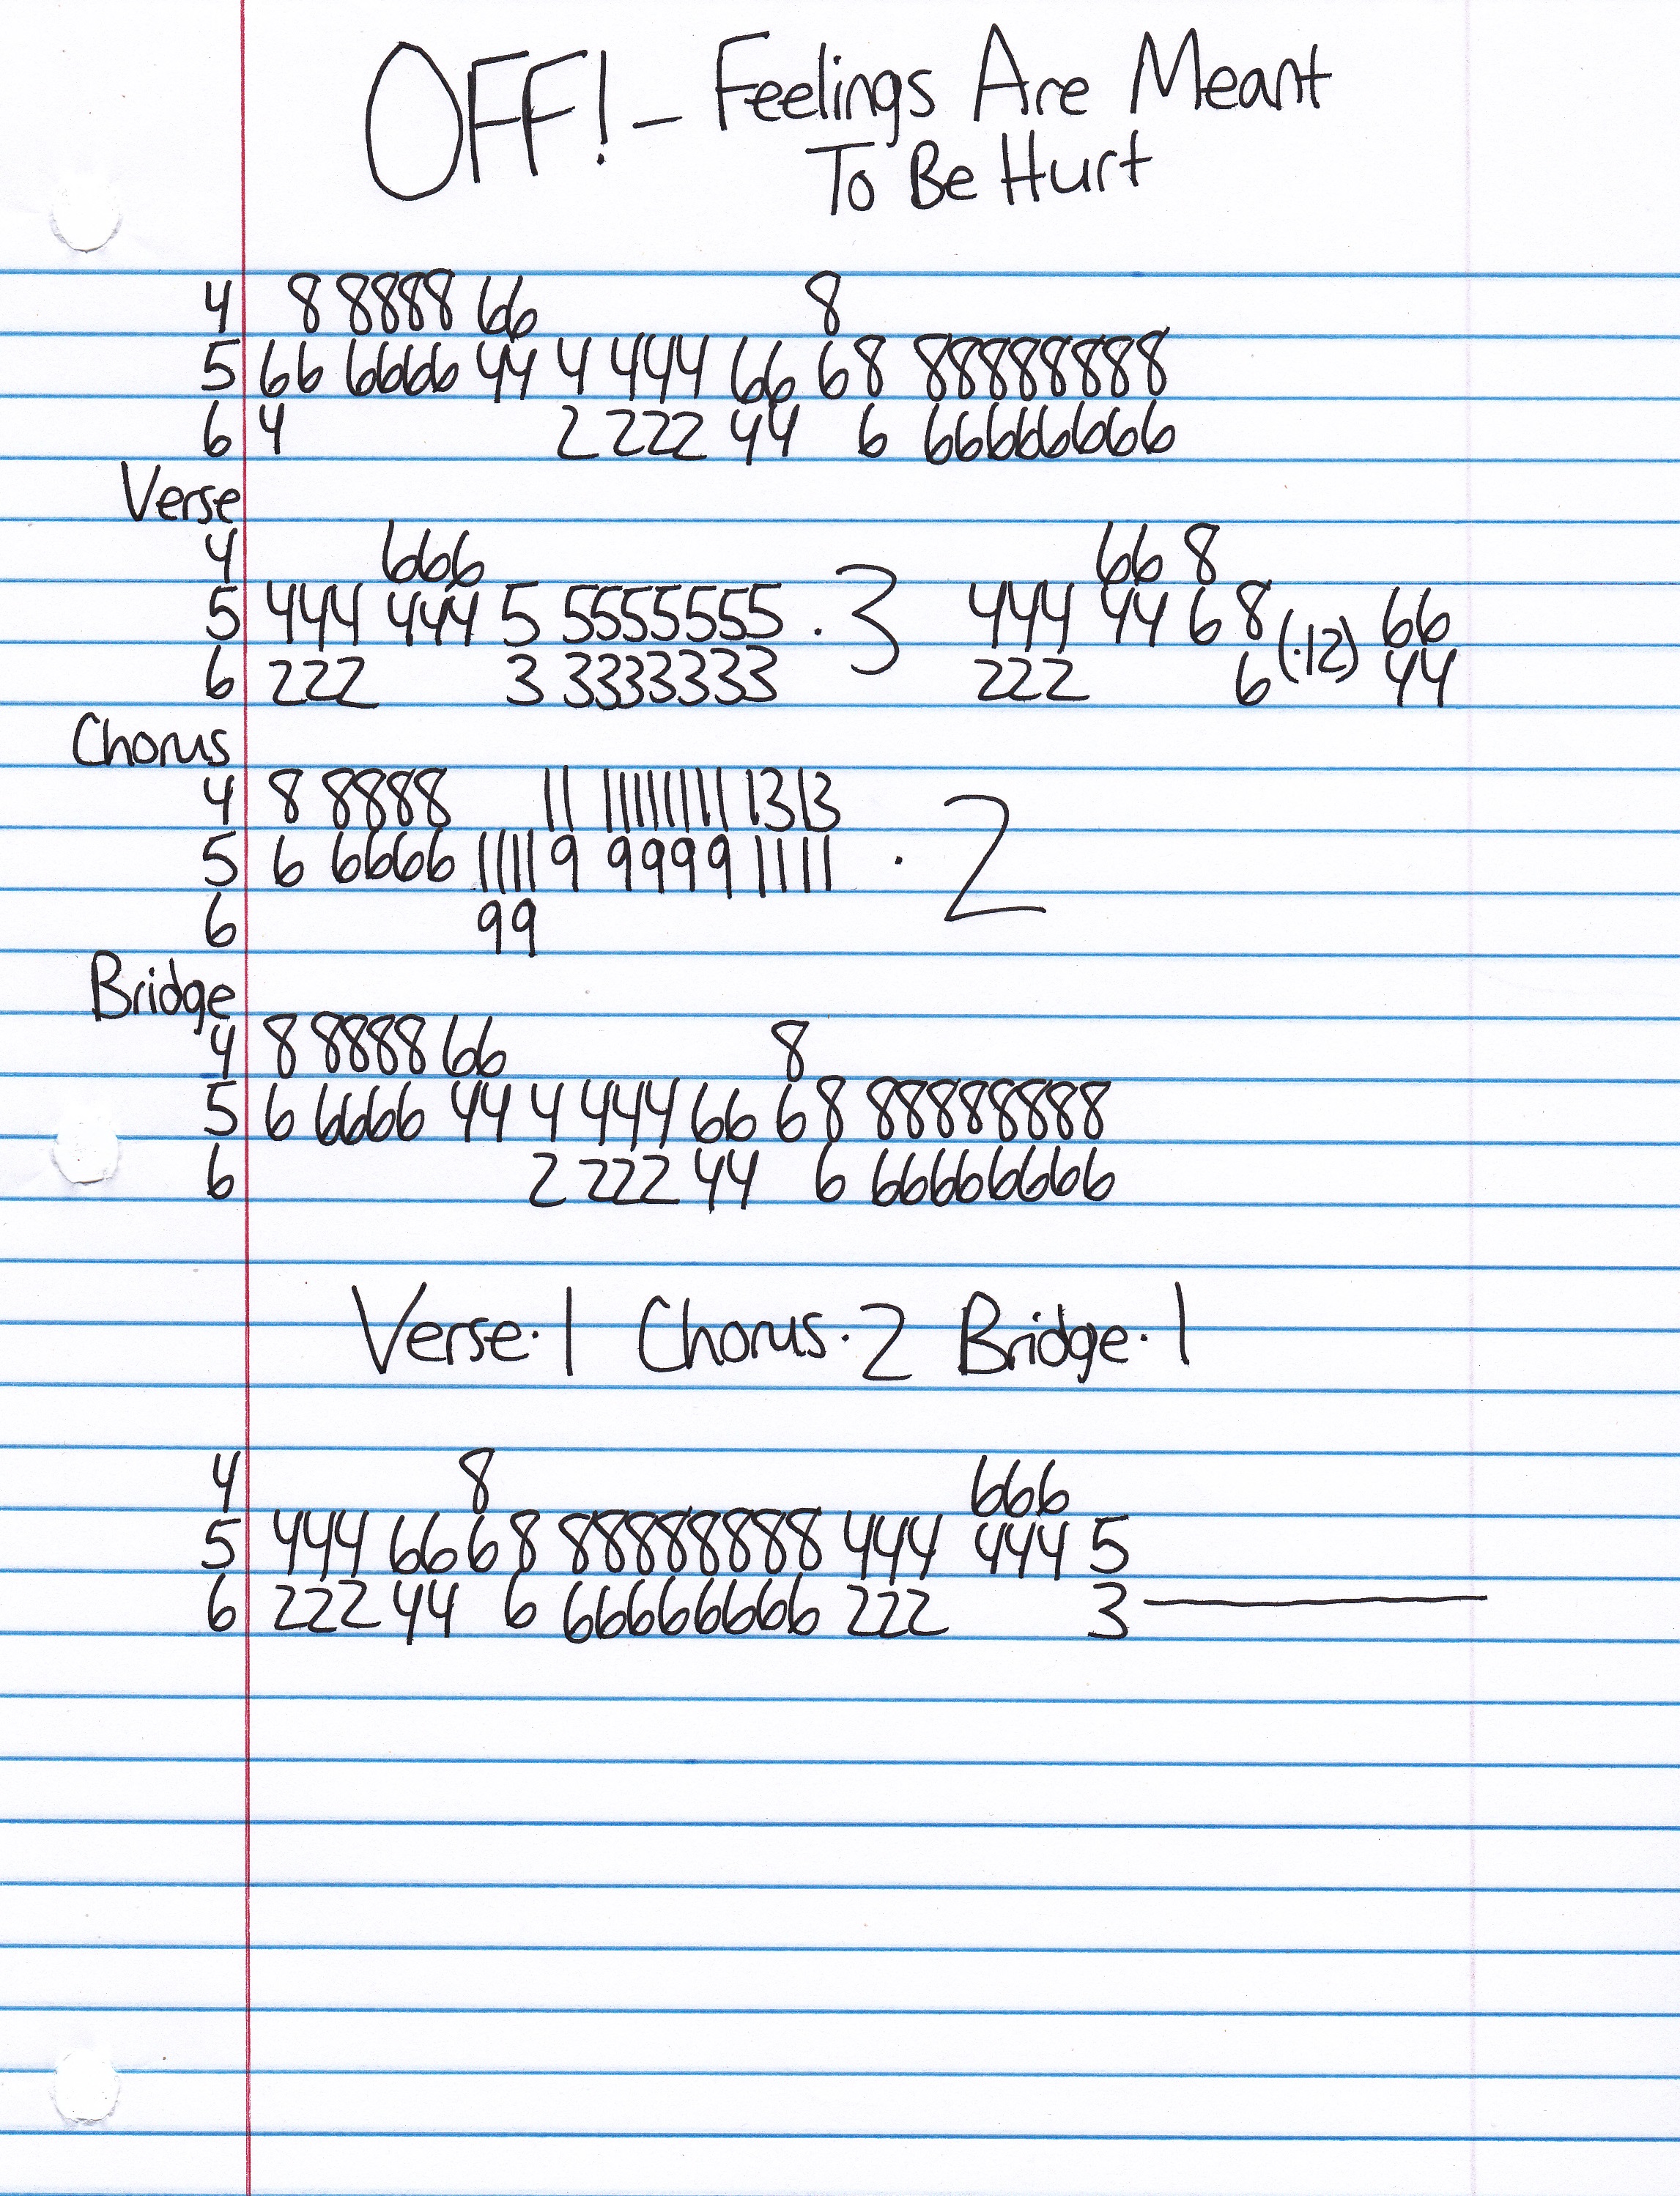 OFF! - Feelings Are Meant
To Be Hurt
4 8 8888 66 8
5 66 6666 44 4 444 66 68 88888888
6 4 2 222 44 6 66666666
Verse
4 666 66 8
5 444 444 5 5555555 .3 444 44 6 8 (.12) 66
6 222 3 3333333 222 6 44
Chorus
4 8 8888 11 11111111 1313
5 6 6666 1111 9 9999 1111 .2
6 99
Bridge
4 8 8888 66 8
5 6 6666 44 4 444 66 6 8 88888888
6 2 222 44 6 66666666
Verse.1 Chorus.2 Bridge.1
4 8 666
5 444 66 6 8 88888888 444 444 5
6 222 44 6 66666666 222 3